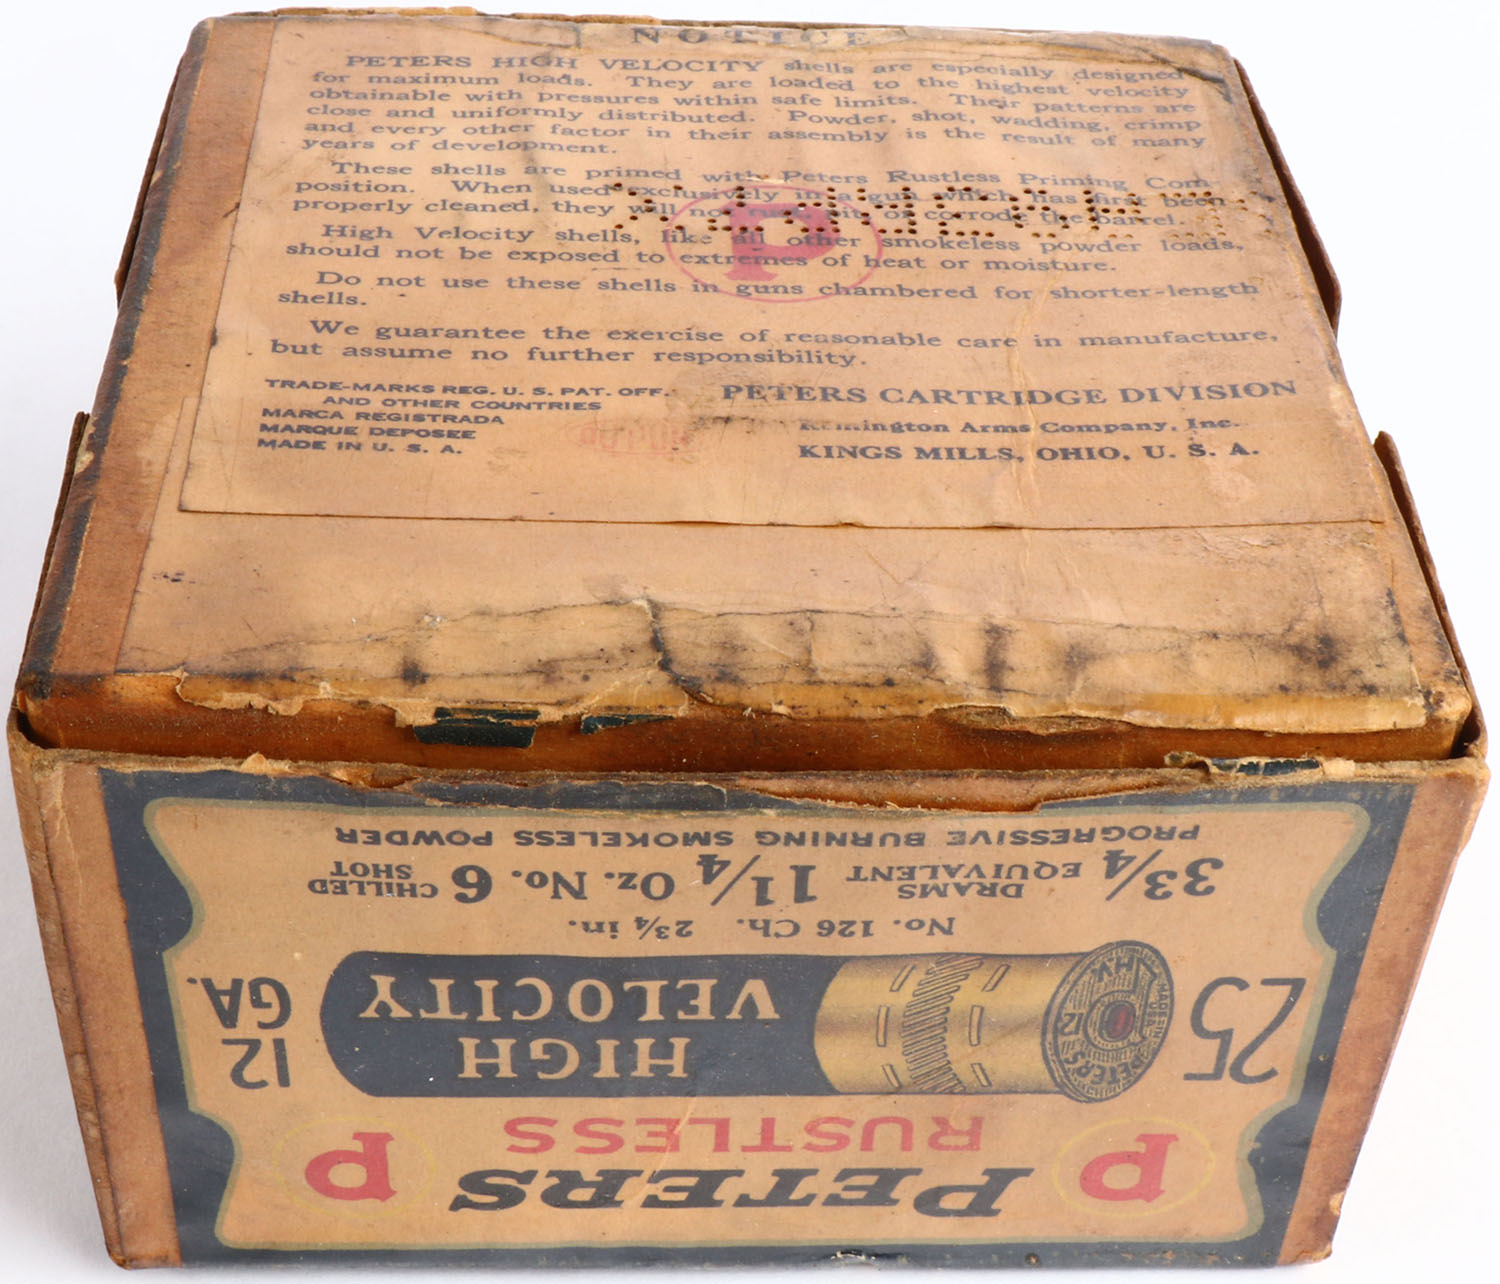 NOTICE
PETERS HIGH VELOCITY shells are especially designed
for maximum loads. They are loaded to the highest velocity
obtainable with pressures within safe limits. Their patterns are
close and uniformly distributed. Powder, shot, wadding, crimp
and every other factor in their assembly is the result of many
years of development.
These shells are primed with Peters Rustless Priming Com-
position. When used exclusively in a gun which has first been
properly cleaned, they will not rust, pit or corrode the barrel.
High Velocity shells, like all other smokeless powder loads,
should not be exposed to extremes of heat or moisture.
Do not use these shells in guns chambered for shorter-length
shells.
We guarantee the exercise of reasonable care in manufacture,
but assume no further responsibility.
TRADE-MARKS REG. U. S. PAT. OFF.
AND OTHER COUNTRIES
MARCA REGISTRADA
MARQUE DEPOSEE
MADE IN U. S. A.
PETERS CARTRIDGE DIVISION
Remington Arms Company, Inc.
KINGS MILLS, OHIO, U. S. A.
P
DU PONT
P PETERS P
RUSTLESS
25
HIGH
VELOCITY
12
GA.
PETERS
12
H.V.
MADE IN
U.S.A.
No. 126 Ch. 2¾ in.
3¾ DRAMS EQUIVALENT 1¼ Oz. No. 6 CHILLED SHOT
PROGRESSIVE BURNING SMOKELESS POWDER